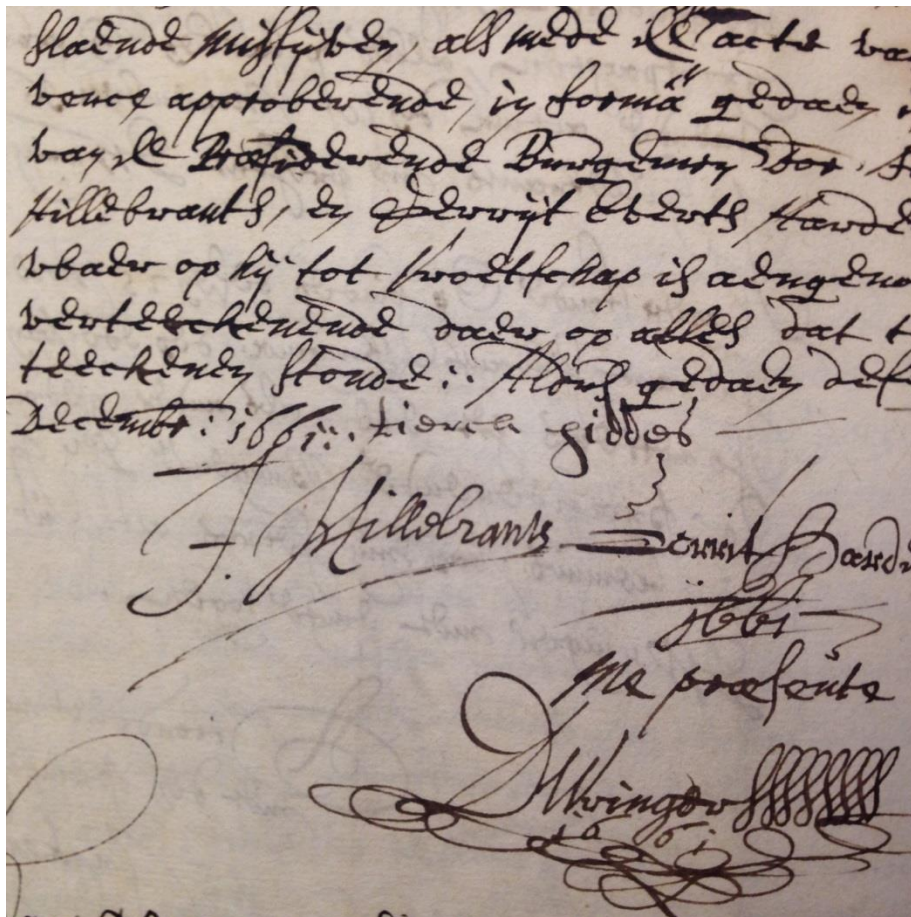 staende missijven, als mede de acte va
vence approberende, in formâ gedaen
van de Præsiderende Burgemrn
Hillebrants, en Gerrijt Everts Harde
wbaer op hij tot Vroetschap is aengeno
verteeckenende daer op alles dat t
teeckenen stonde :: Aldus gedaen des
Decembr: 1661 :: tierck hiddes
J Hillebrants Gerrit Hard
1661
me præsente
Wringer
1661